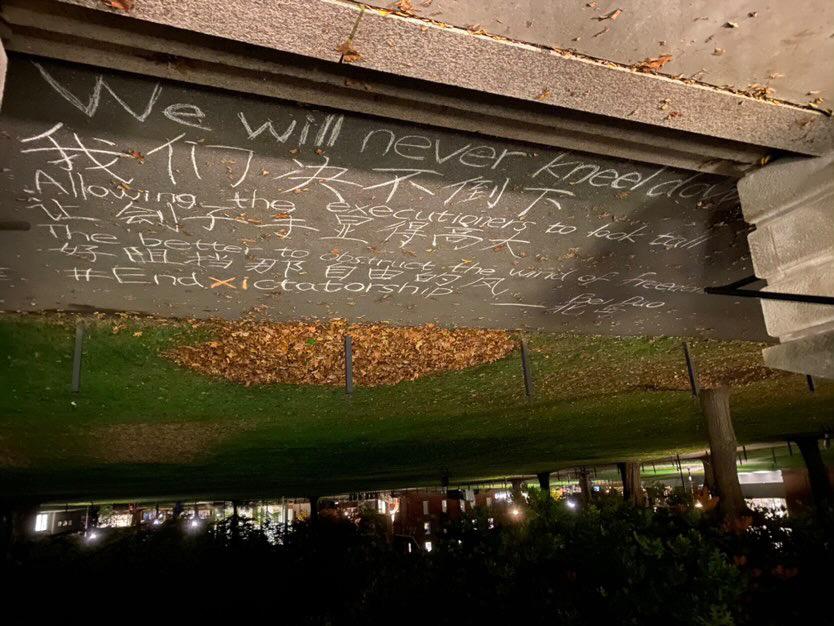 We will never kneel down
我们决不倒下
Allowing the executioners to look tall
让刽子手显得高大
The better to obstruct the wind of freedom
好阻挡那自由的风
#Endxictatorship
— Bei Dao
北岛